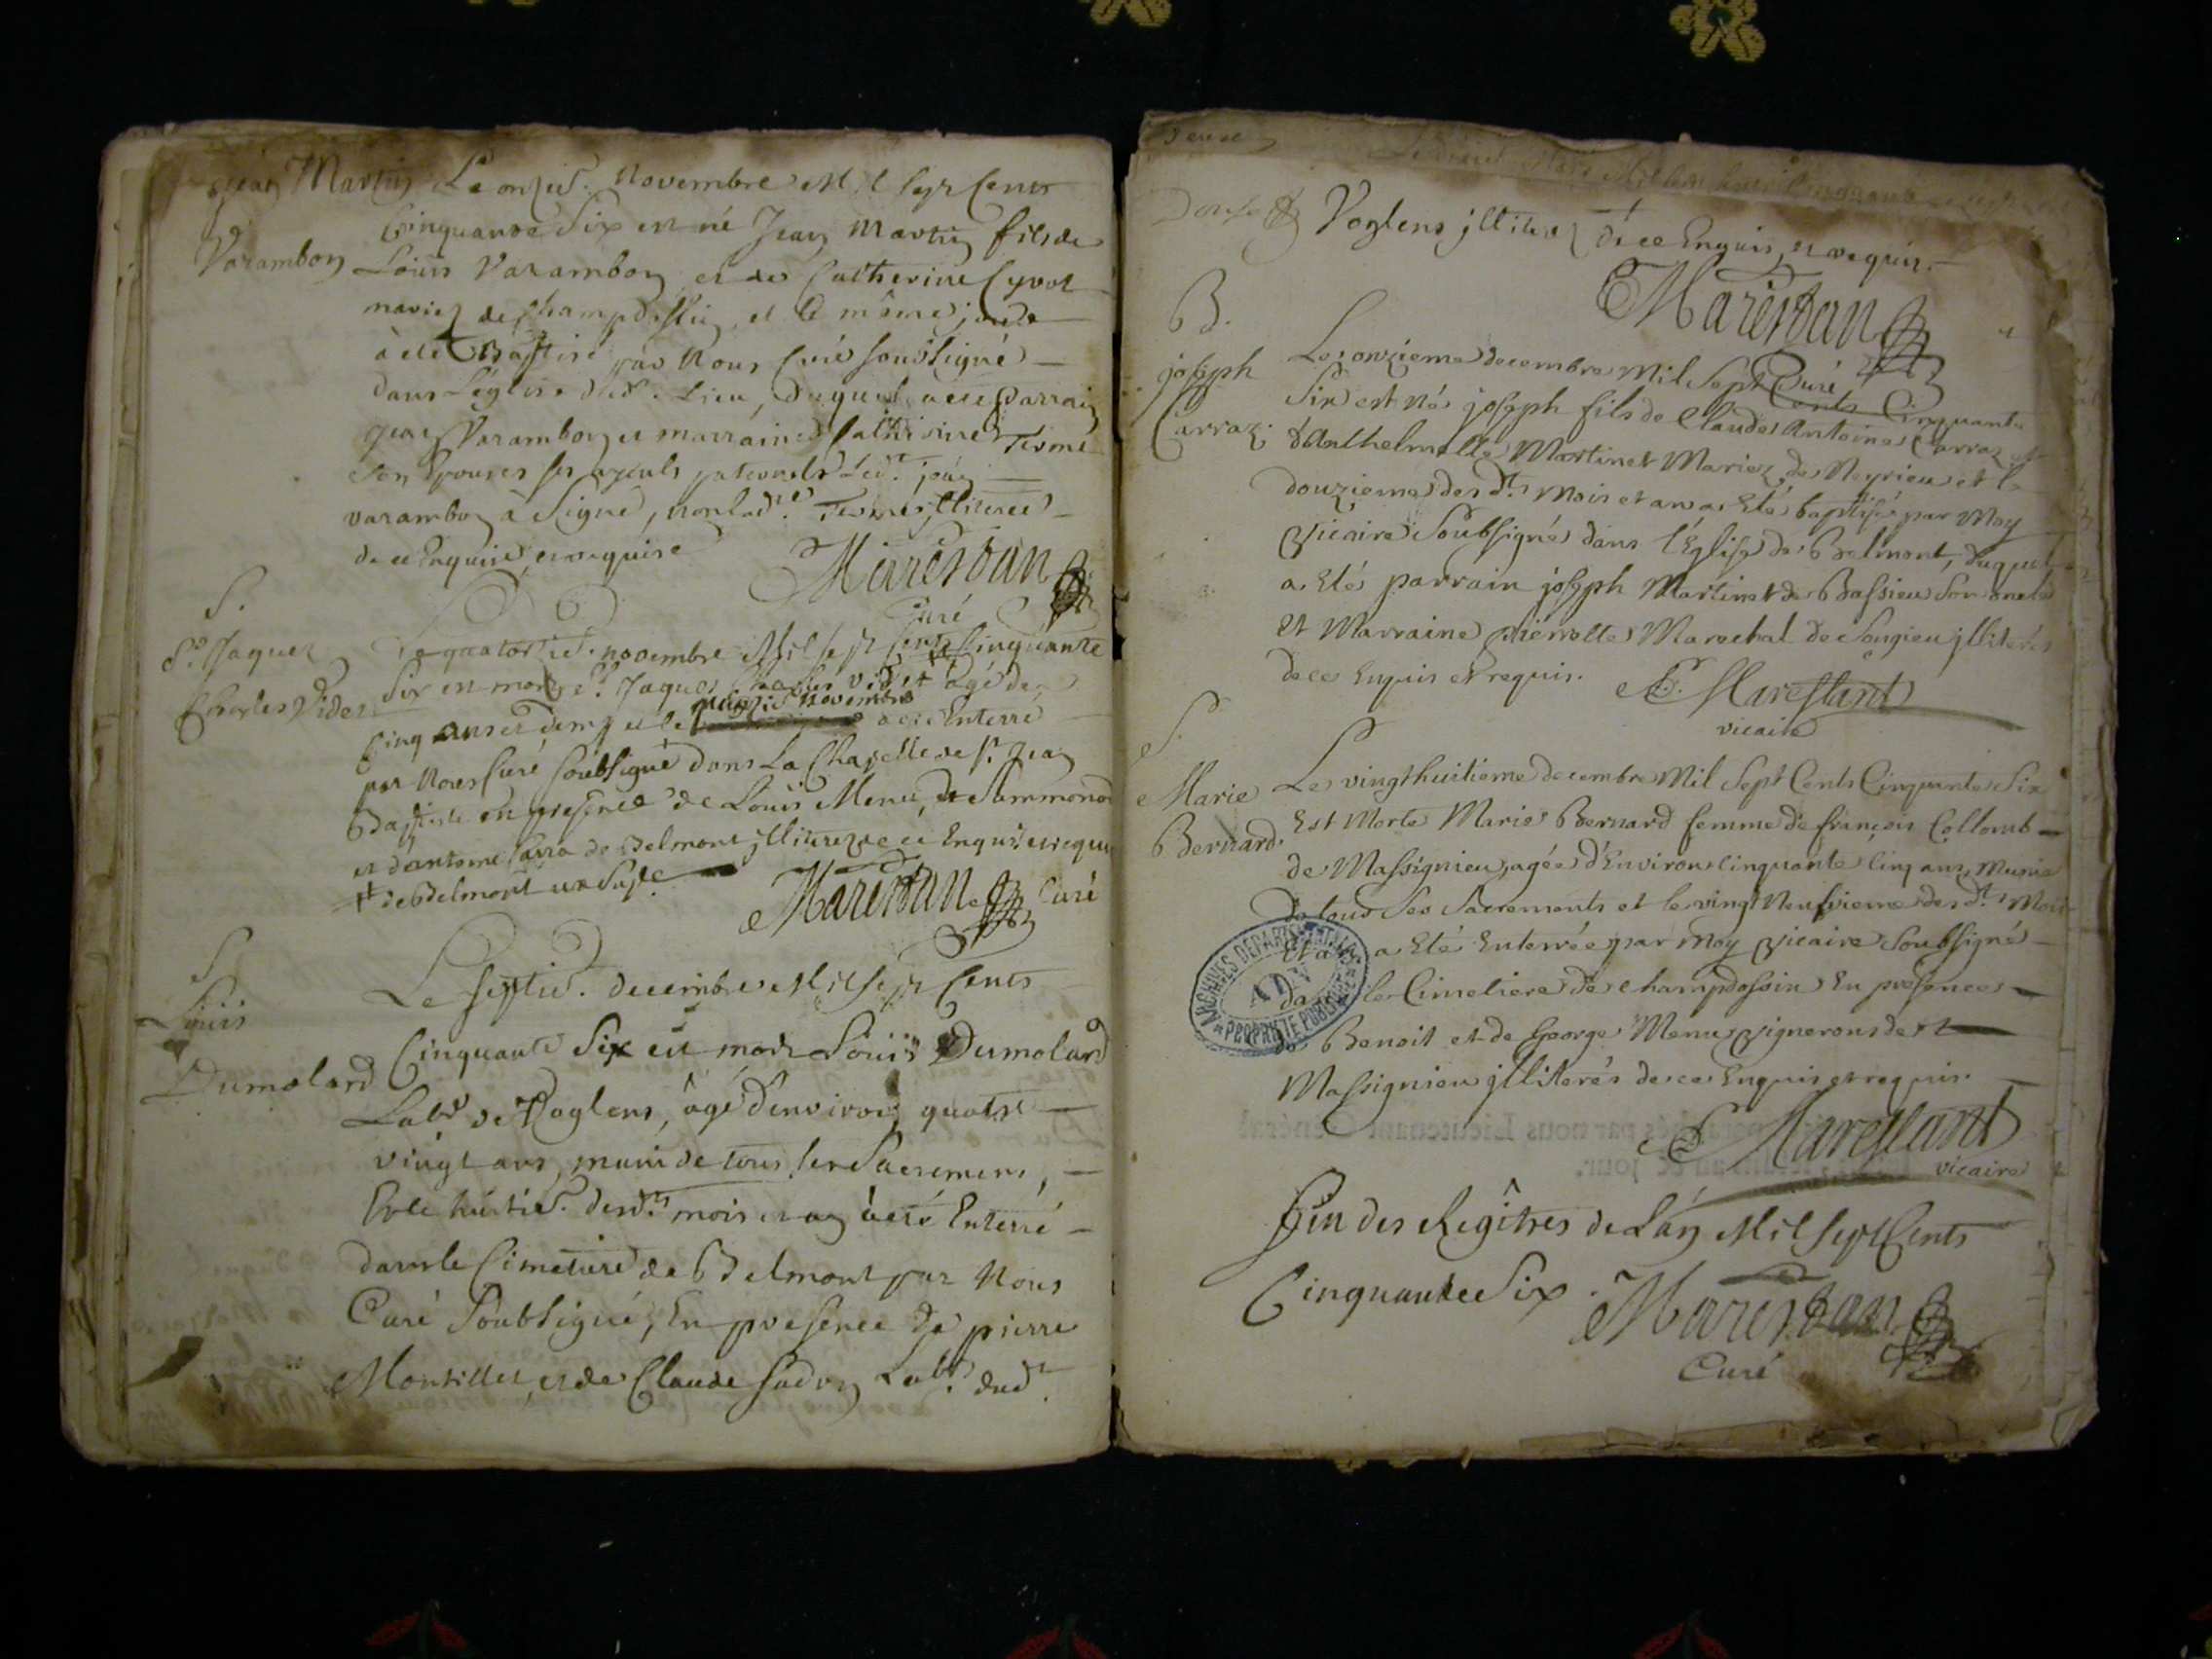 Jean Martin
Varambon
Le onzie. Novembre Mil sept Cents
Cinquante Six est né Jean Martin fils de
Louis Varambon et de Catherine Cyvot
mariez de Champdossin, et le même jour
a été Baptisé par Nous Curé soussigné
dans L'église dud. Lieu, duquel a été Parrain
Jean Varambon et marraine Catherine Terme
son Epouse ses ayeuls paternels Led. jean
varambon a Signé, non lad.
de ce Enquise, et requise
Marestan
Curé
S.
Sr. Jaques
Charles Videt
Le quatorzie. novembre Mil sept Cents Cinquante
Six est mort Sr. Jaques Charles Videt agé de
Cinq ans et demy et le quinzie Novembre a été Enterré
par Nous Curé soubsigné dans La Chapelle de St. Jean
Baptiste en presence de Louis Menu, de Sammonod
et d'antoine Carra de Belmont jlliterez de ce Enquis et requis
de Belmont
Marestan Curé
S.
Louis
Dumolard
Le septie. decembre Mil sept Cents
Cinquante Six est mort Louis Dumolard
Labr. de Voglens, âgé d'environ quatre
vingt ans, muni de tous les Sacremens,
Et le huitie. desd. mois et an a été Enterré
dans le Cimetiere de Belmont par Nous
Curé Soubsigné, En presence de pierre
Montillet, et de Claude Labr. dud.
Voglens jlliterez de ce Enquis, et requis.
Marestan
Curé
B.
joseph
Carraz.
Le onzieme decembre Mil Sept Cents Cinquante
Six est Né joseph fils de Claude Antoine Carraz et
d'Anthelmette Martinet Mariez de Neyrieu et le
douzieme des dt. mois et an a Eté baptisé par Moy
Vicaire Soubsigné dans l'Eglise de Belmont, duquel
a Eté parrain joseph Martinet de Bassieu Son oncle
et Marraine pierrotte Marechal de Songieu jlliterés
de ce Enquis et requis.
C. Marestant
vicaire
S.
Marie
Bernard.
Le vingthuitieme decembre Mil Sept Cents Cinquante Six
Est Morte Marie Bernard femme de françois Collomb
de Massignieu, agée d'Environ Cinquante Cinq ans, Munie
de tous Ses Sacrements et le vingt Neufvieme des dt. Mois
Et a Eté Enterrée par Moy Vicaire Soubsigné
dans le Cimetiere de Champdossin En presence
de Benoit et de George Menu Vignerons de
Massignieu jlliterés de ce Enquis et requis.
C. Marestant
vicaire
ARCHIVES DEPARTEMENTALES
AIN
PROPRIETE PUBLIQUE
Fin des Regîtres de L'an Mil sept Cents
Cinquante Six.
Marestan
Curé